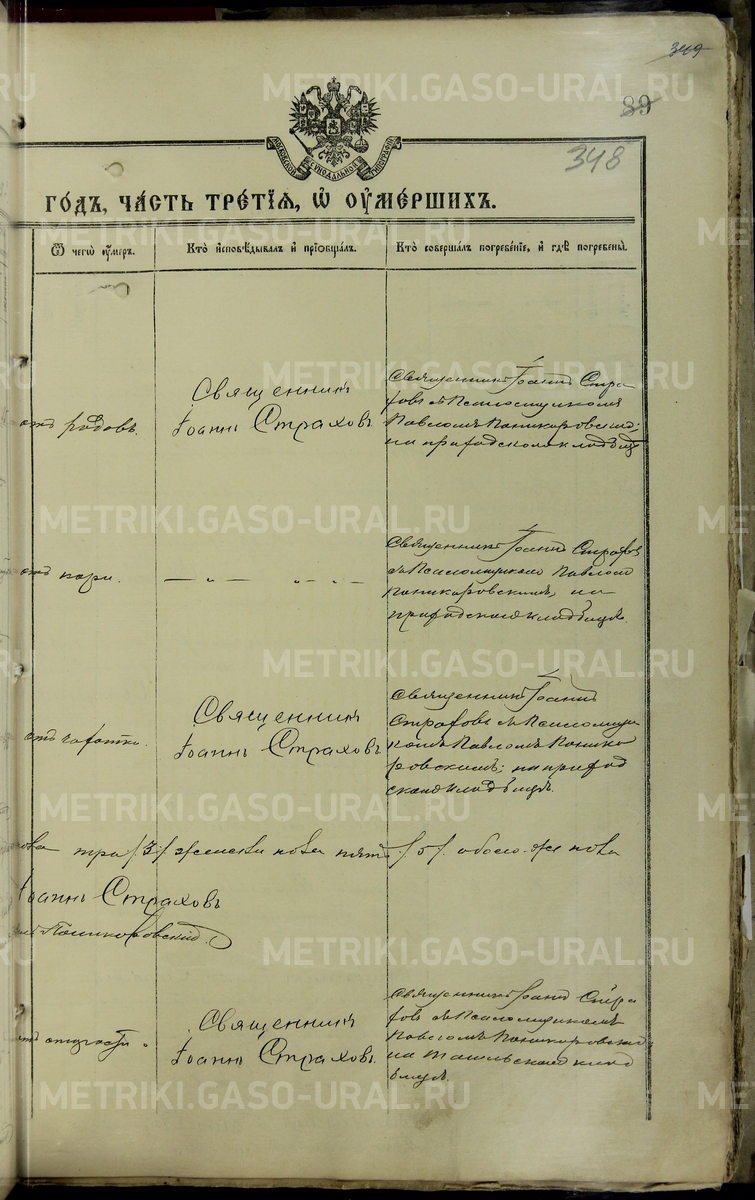 349
89
348
МОСКОВСКОЙ СѴНОДАЛЬНОЙ ТИПОГРАФІИ
ГО́ДЪ, ЧА́СТЬ ТРЕ́ТІѦ, Ѡ҆ ОУ҆МЕ́РШИХЪ.
Ѿ чегѡ̀ оу҆́меръ.
Кто̀ и҆сповѣ́дывалъ и҆ прїѡбща́лъ.
Кто̀ соверша́лъ погребе́нїе, и҆ гдѣ̀ погребены̀.
отъ родовъ.
Священникъ
Іоаннъ Страховъ
Священникъ Іоаннъ Стра
ховъ съ Псаломщикомъ
Павломъ Поникаровскимъ;
на приходскомъ кладбищѣ
отъ кори.
— „ — „ — „ —
Священникъ Іоаннъ Страховъ
съ Псаломщикомъ Павломъ
Поникаровскимъ, на
приходскомъ кладбищѣ.
отъ чахотки.
Священникъ
Іоаннъ Страховъ
Священникъ Іоаннъ
Страховъ съ Псаломщи
комъ Павломъ Поника
ровскимъ; на приход
скомъ кладбищѣ.
три /3/ женска пола пять /5/ обоего же пола
Іоаннъ Страховъ
Поникаровскій
Священникъ
Іоаннъ Страховъ
Священникъ Іоаннъ Стра
ховъ съ Псаломщикомъ
Павломъ Поникаровскимъ
на кладб
ищѣ.
METRIKI.GASO-URAL.RU